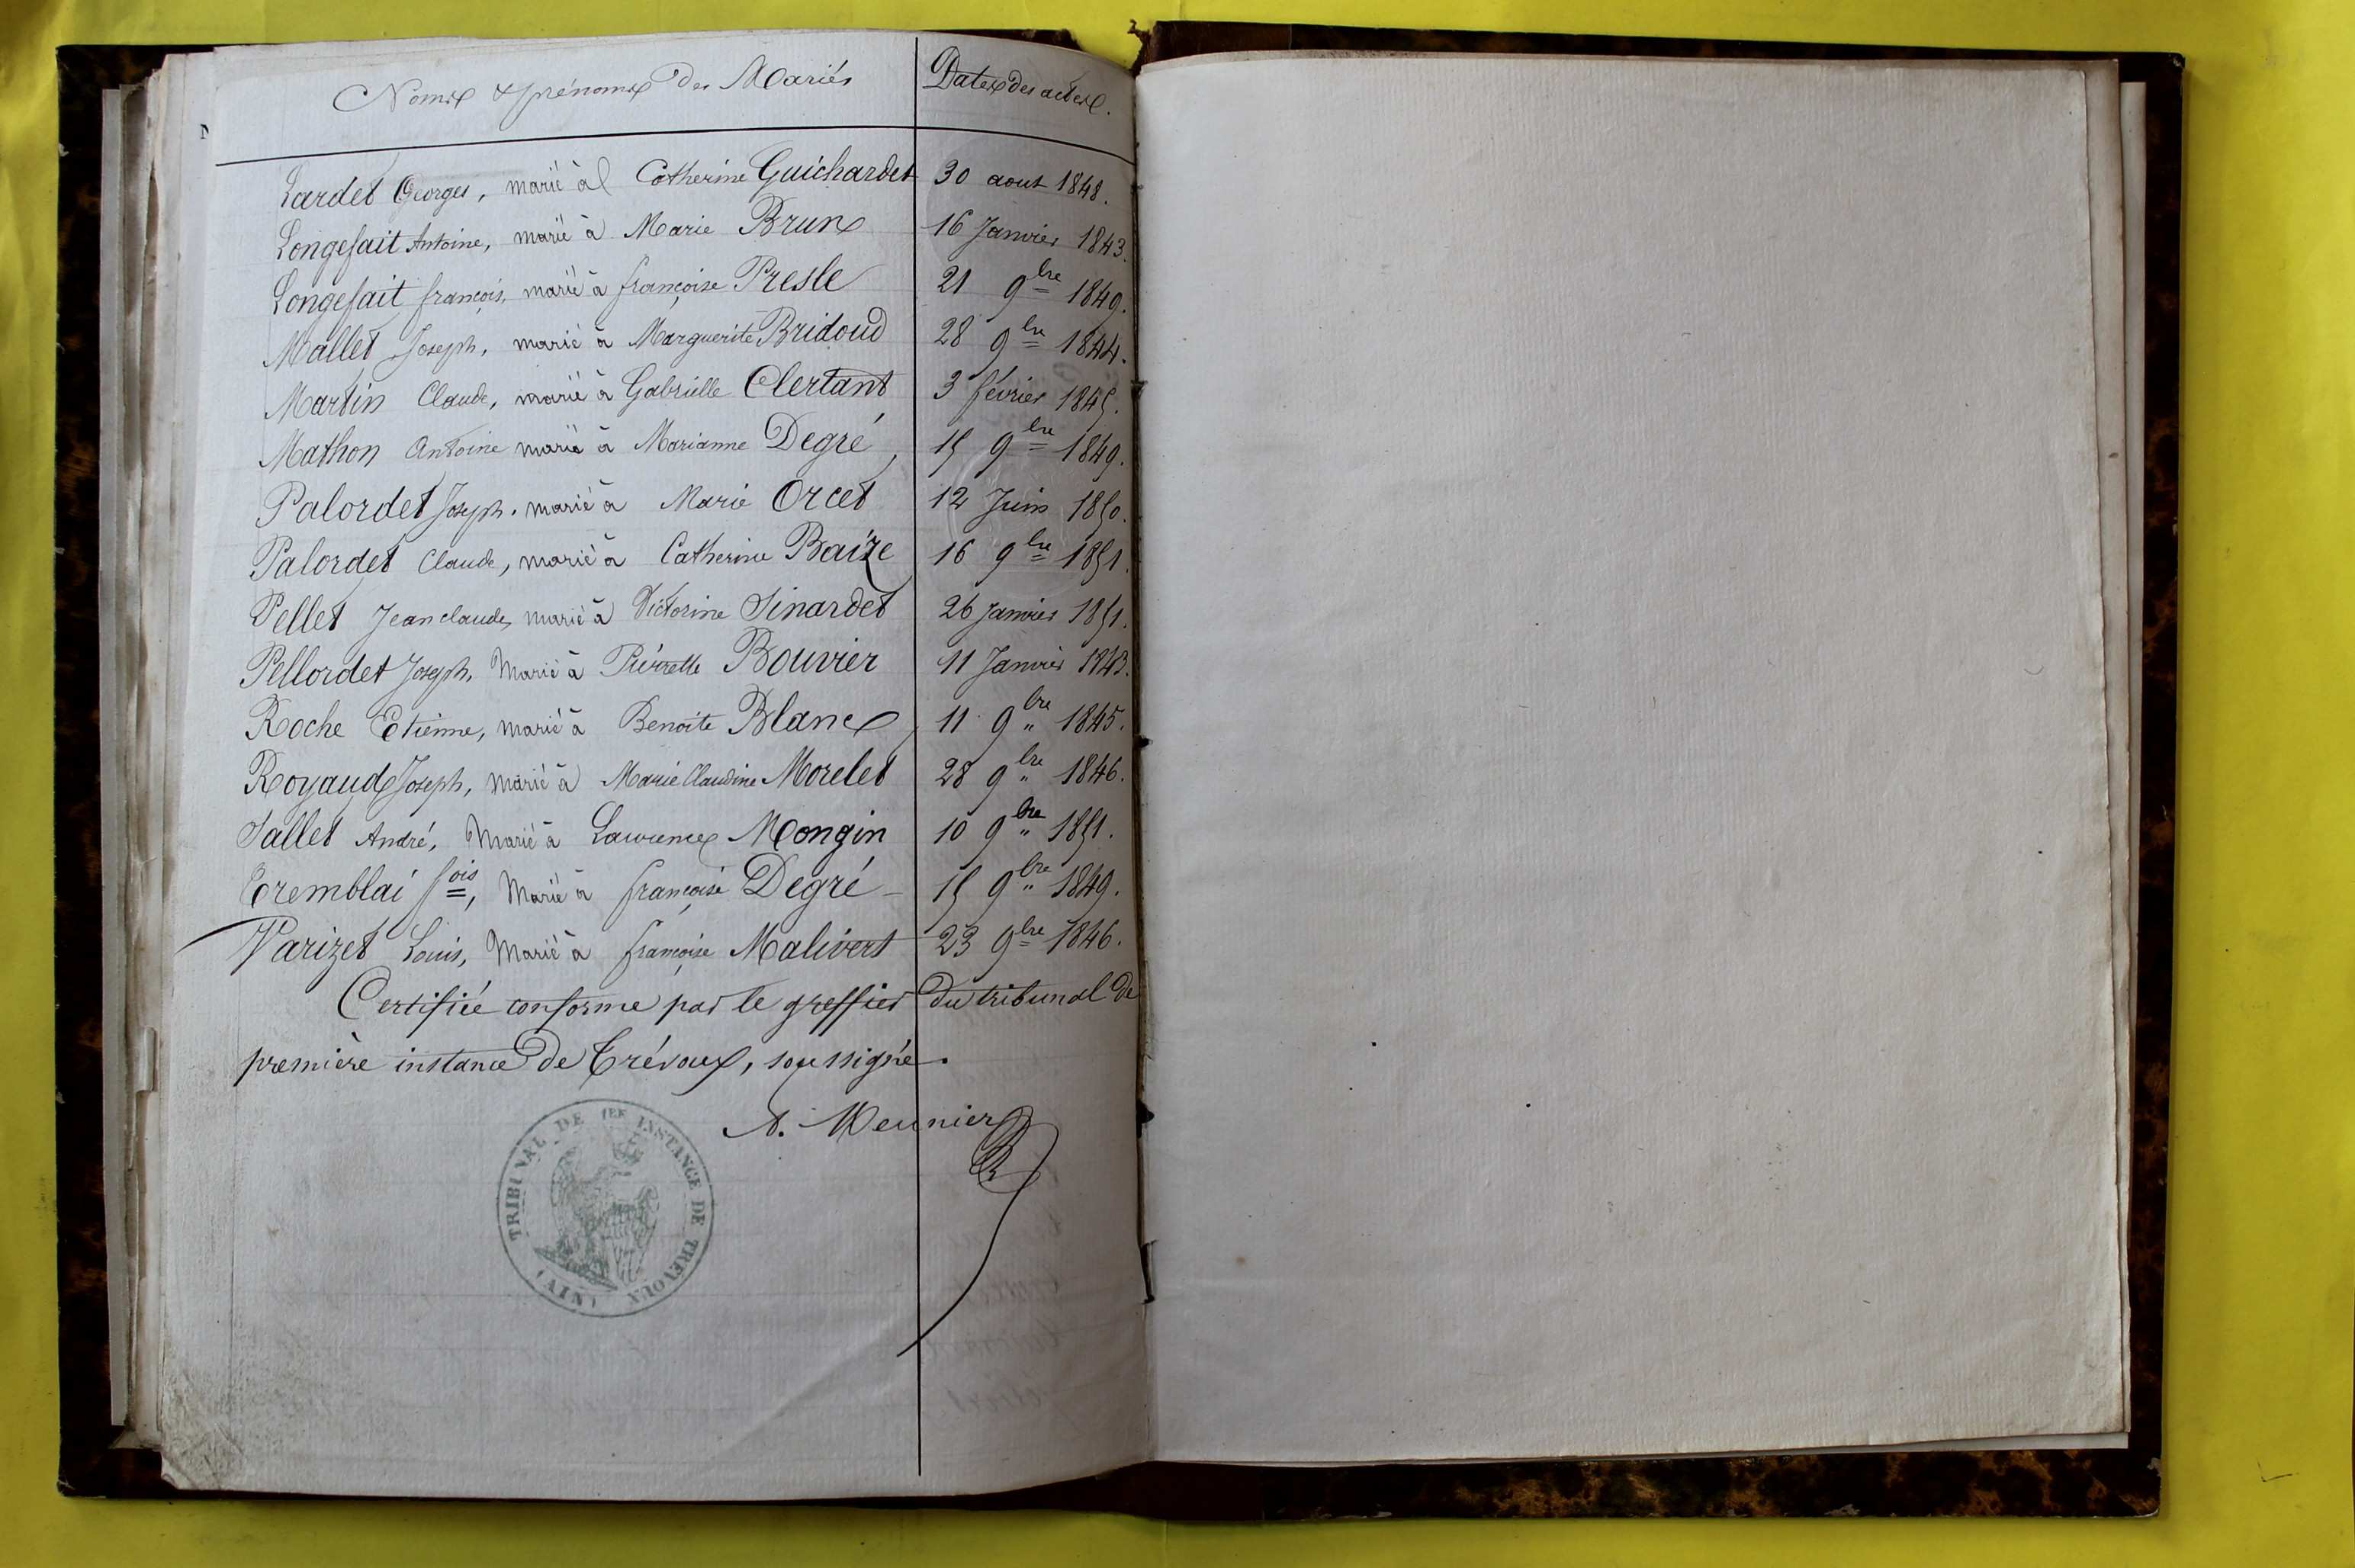 Noms & prénoms des Mariés Dates des actes.
Lardet Georges, marié à Catherine Guichardet 30 aout 1848.
Longefait Antoine, marié à Marie Brun 16 Janvier 1843.
Longefait françois, marié à françoise Presle 21 9bre 1849.
Mallet Joseph, marié à Marguerite Bridoud 28 9bre 1844.
Martin Claude, marié à Gabrielle Clertant 3 février 1845.
Mathon Antoine marié à Marianne Degré, 15 9bre 1849.
Palordet Joseph. marié à Marie Orcet 12 Juin 1850.
Palordet Claude, marié à Catherine Baize 16 9bre 1851.
Pellet Jeanclaude, marié à Victorine Sinardet 26 Janvier 1851.
Pellordet Joseph, Marié à Pierrette Bouvier 11 Janvier 1843.
Roche Etienne, marié à Benoite Blanc, 11 9bre 1845.
Royaud Joseph, Marié à Marie Claudine Morelet 28 9bre 1846.
Sallet André, Marié à Laurence Mongin 10 9bre 1851.
Tremblai fois, Marié à françoise Degré 15 9bre 1849.
Varizet Louis, Marié à françoise Malivert 23 9bre 1846.
Certifiée conforme par le greffier du tribunal de
première instance de Trévoux, soussigné.
A. Meunier
TRIBUNAL DE 1ER INSTANCE DE TREVOUX
(AIN)